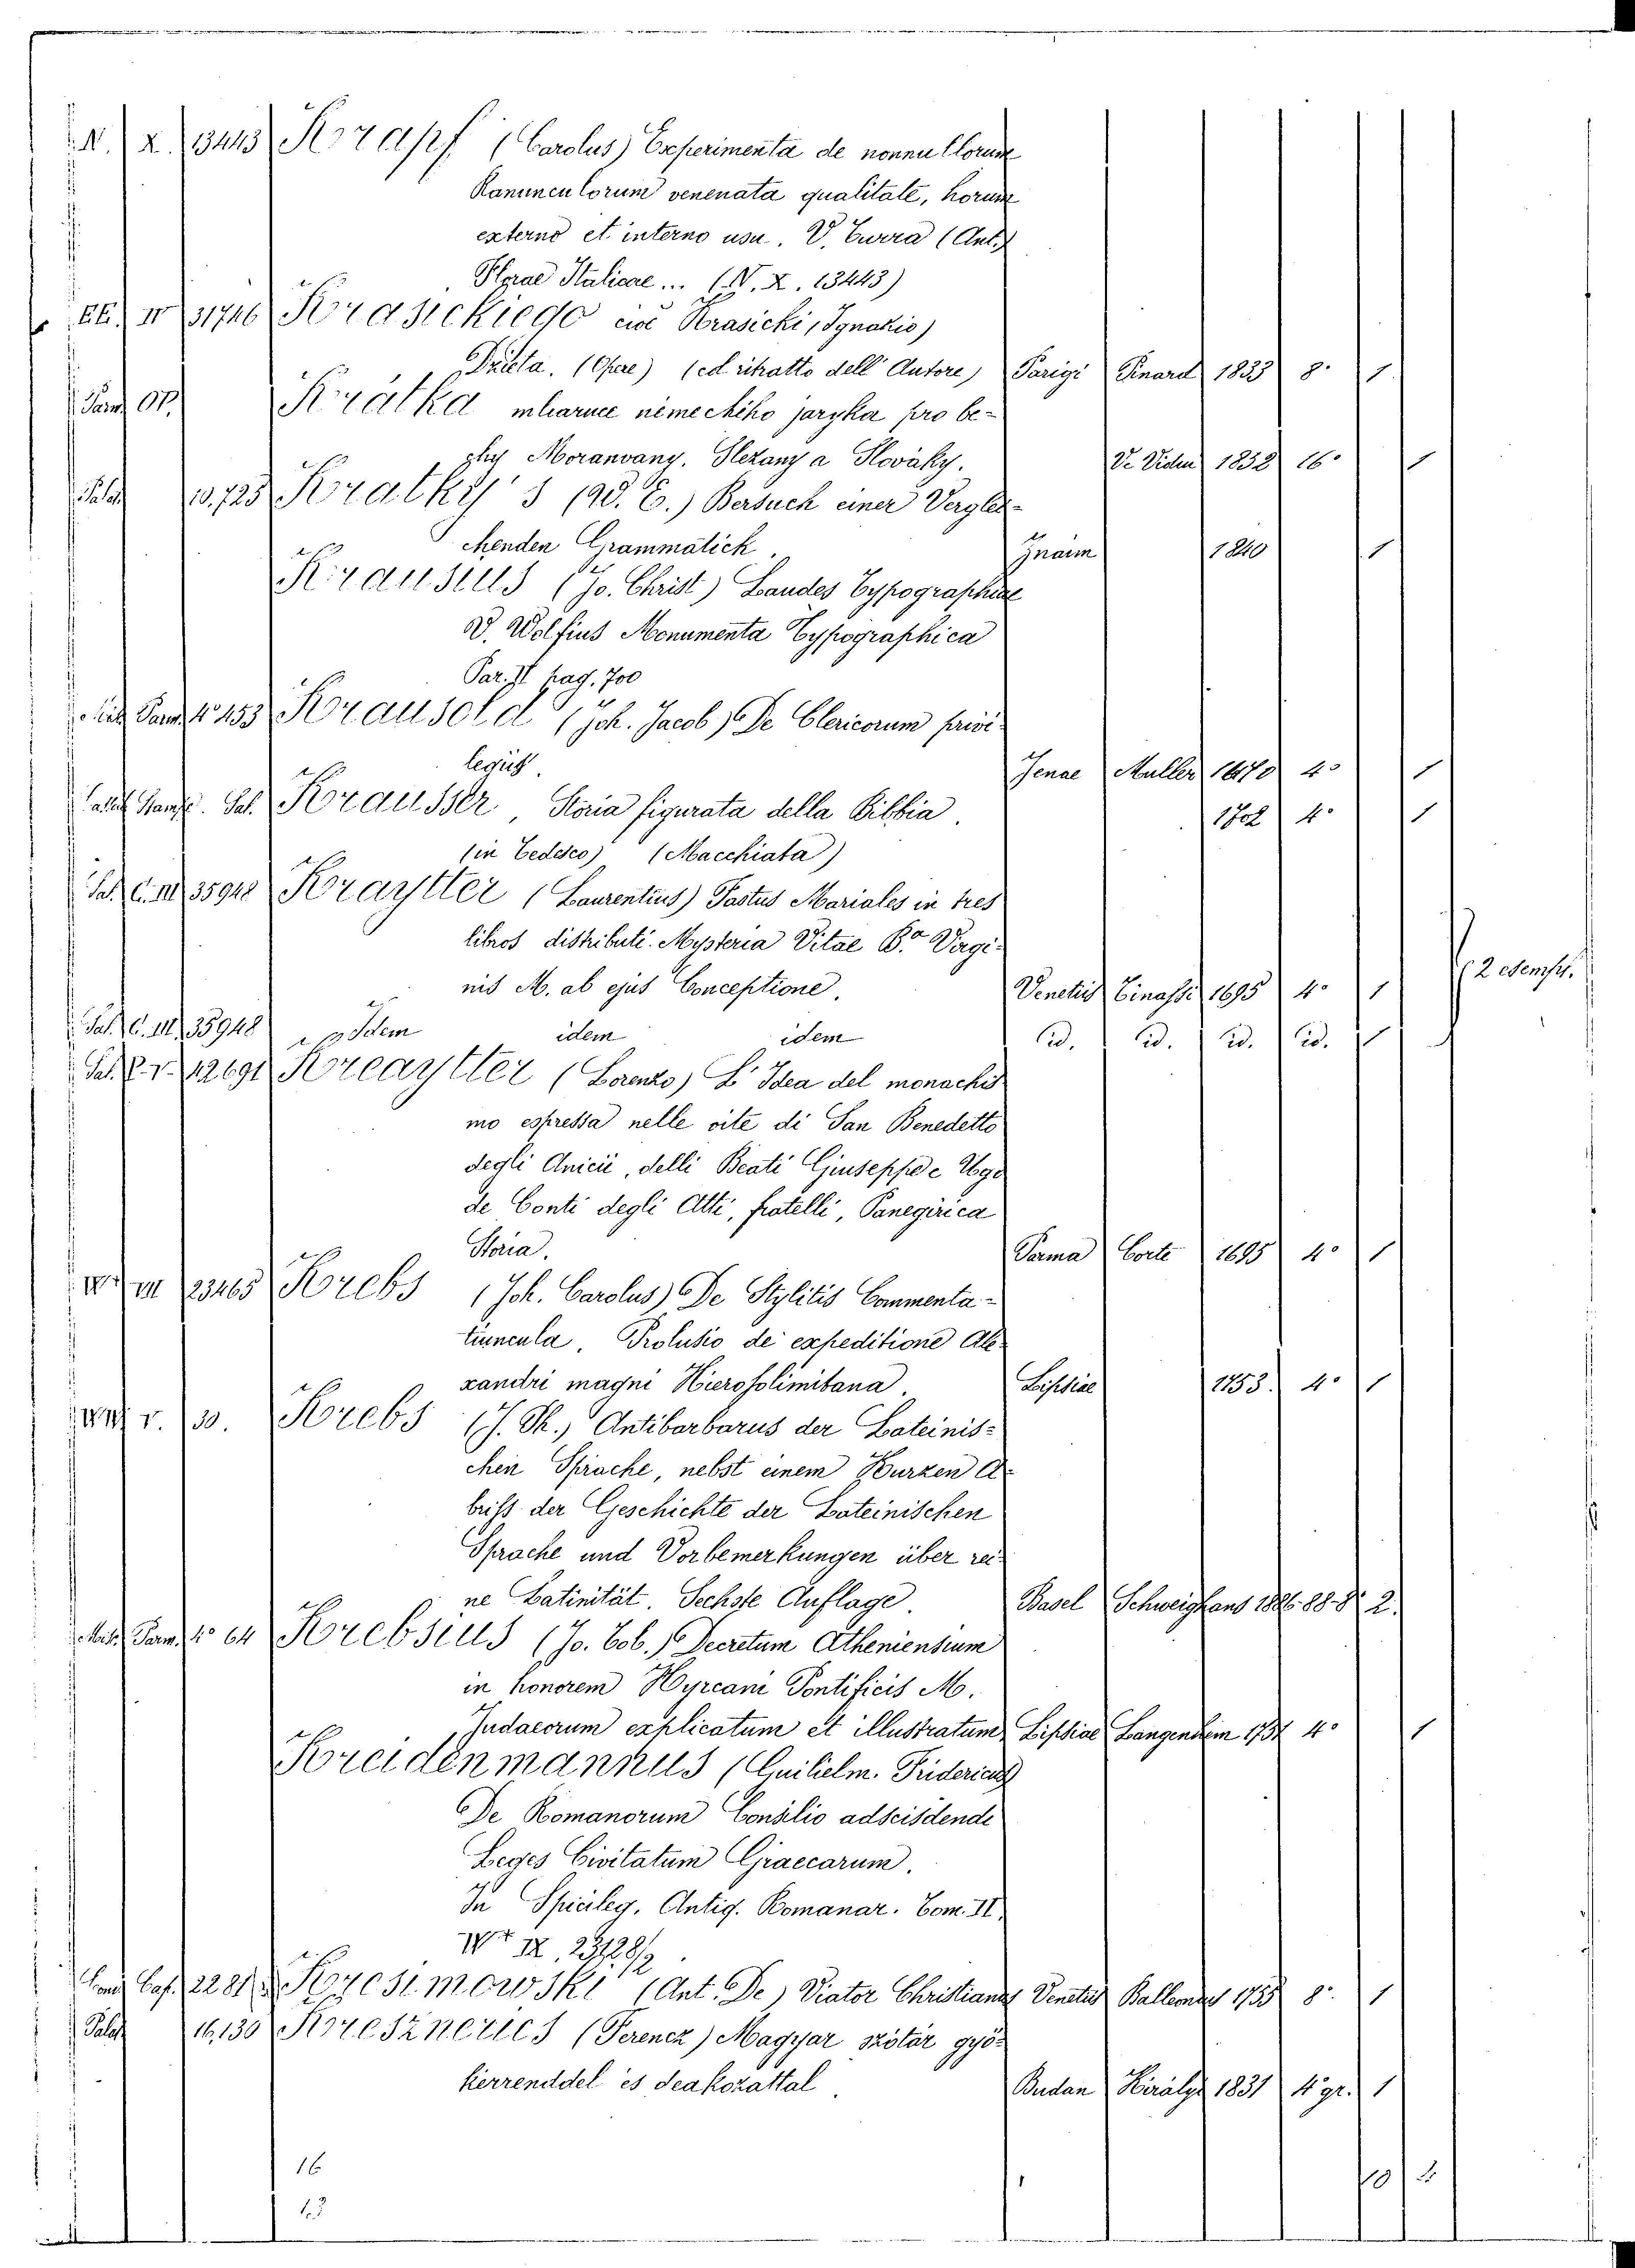 N. X. 13443 Krapf (Carolus) Experimenta de nonnullorum
Ranunculorum venenata qualitate, horum
externo et interno usu. V. Turra (Ant.)
Florae Italicae... (N. X. 13443)
EE. IV 31746 Krasickiego cioè Krasicki (Ignazio)
Dzieta. (Opere) (ed ritratto dell' Autore) Parigi Pinard 1833 8° 1
Parm. OP. Krátka mluvnice nemeckiho jaryka pro be-
zhy Moranvany, Slezany a Slováky. Ve Vidni 1832 16° 1
Palat. 13.725 Kratky's (V. E.) Bersuch einer Verglei-
chenden Grammatick. Znaim 1840 1
Krausius (Jo. Christ) Laudes Typographiae
V. Wolfius Monumenta Typographica
Par. II pag. 700
Parm. 4° 153 Krausold (Joh. Jacob) De Clericorum privi-
legiis. Jenae Muller 1670 4° 1
Pal. Krausser, Storia figurata della Bibbia. 1702 4° 1
(in Tedesco) (Macchiata)
Pal. C. III 35948 Kraytter (Laurentius) Fastus Mariales in tres
libros distributi. Mysteria Vitae B.ae Virgi-
nis M. ab ejus Conceptione. Venetiis Tinassi 1695 4° 1 2 esempl.
Pal. C. III. 35948 Idem idem idem id. id. id. id. 1
Pal. V. 12691 Kreaytter (Lorenzo) L' Idea del monachis
mo espressa nelle vite di San Benedetto
degli Anicii, delli Beati Giuseppe e Ugo
de Conti degli Atti, fratelli, Panegirica
Storia. Parma Corte 1695 4° 1
23465 Krebs (Joh. Carolus) De Stylitis Commenta-
tiuncula. Prolusio de expeditione Ale-
xandri magni Hierosolimitana. Lipsiae 1753. 4° 1
V. 30. Krebs (J. Ph.) Antibarbarus der Lateinis-
chen Sprache, nebst einem Kurzen A-
briss der Geschichte der Lateinischen
Sprache und Vorbemerkungen über rei-
ne Latinität. Sechste Auflage. Basel Schweighaus 1886-88 8° 2.
Parm. 4° 64 Krebsius (Jo. Tob.) Decretum Atheniensium
in honorem Hyrcani Pontificis M.
Judaeorum explicatum et illustratum. Lipsiae Langenheim 1751 4° 1
Kreidenmannus (Guilielm. Fridericus)
De Romanorum Consilio adscisdende
Leges Civitatum Graecarum.
In Spicileg. Antiq. Romanar. Tom. II.
IX, 23128/2
Caf. 2281 Kresimowski (Ant. De) Viator Christianus Venetiis Balleonius 1755 8° 1
Palat. 16.130 Kresznerics (Ferencz) Magyar szótár gyö-
kerrenddel és deakozattal. Budan Királyi 1831 4° gr. 1
16
13
10 2